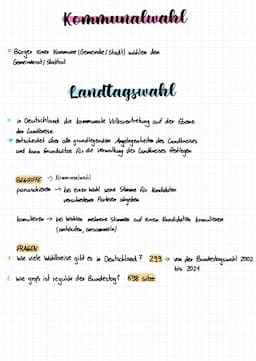 Kommunalwahl
Bürger einer Kommune (Gemeinde/Stadt) wählen den
Gemeinderat/Stadtrat
Landtagswahl
in Deutschland die kommunale Volksvertretung auf der Ebene
der Landkreise
entscheidet über alle grundlegenden Angelegenheiten des Landkreises
und kann Grundsätze für die Verwaltung des Landkreises festlegen
BEGRIFFE -> Kommunalwahl
panaschieren -> bei einer Wahl seine Stimme für Kandidaten
verschiedener Parteien abgeben
kumulieren -> bei Wahlen mehrere Stimmen auf einen Kandidaten kumulieren
(anhäufen, ansammeln)
FRAGEN
1. Wie viele Wahlkreise gibt es in Deutschland? 299 -> von der Bundestagswahl 2002
bis 2021
2. Wie groß ist regulär der Bundestag? 598 Sitze